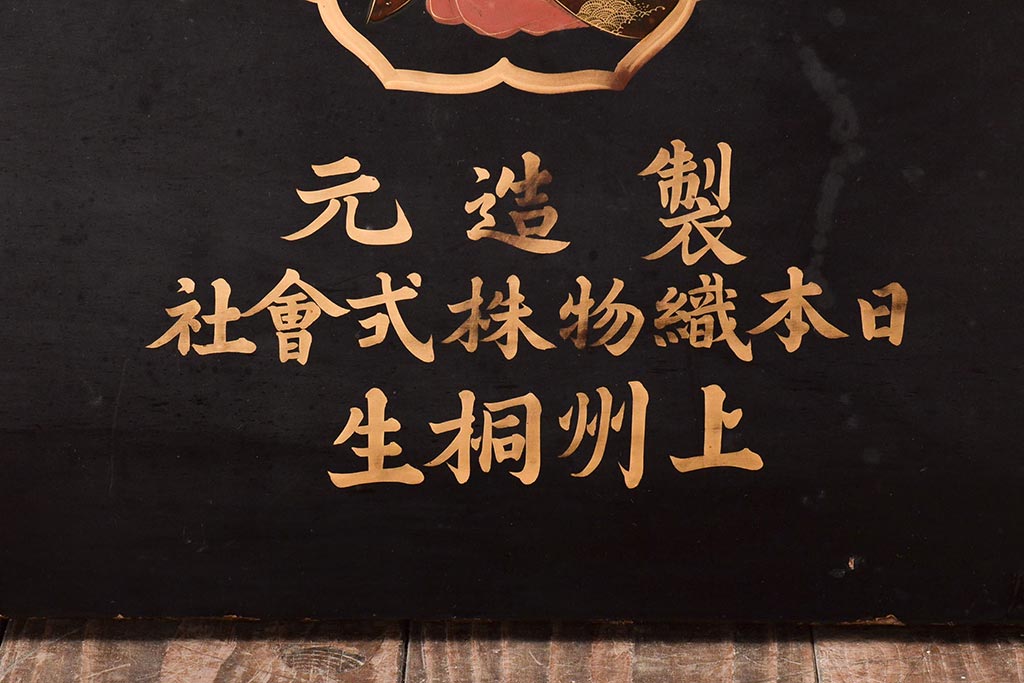 製造元
日本織物株式會社
上州桐生